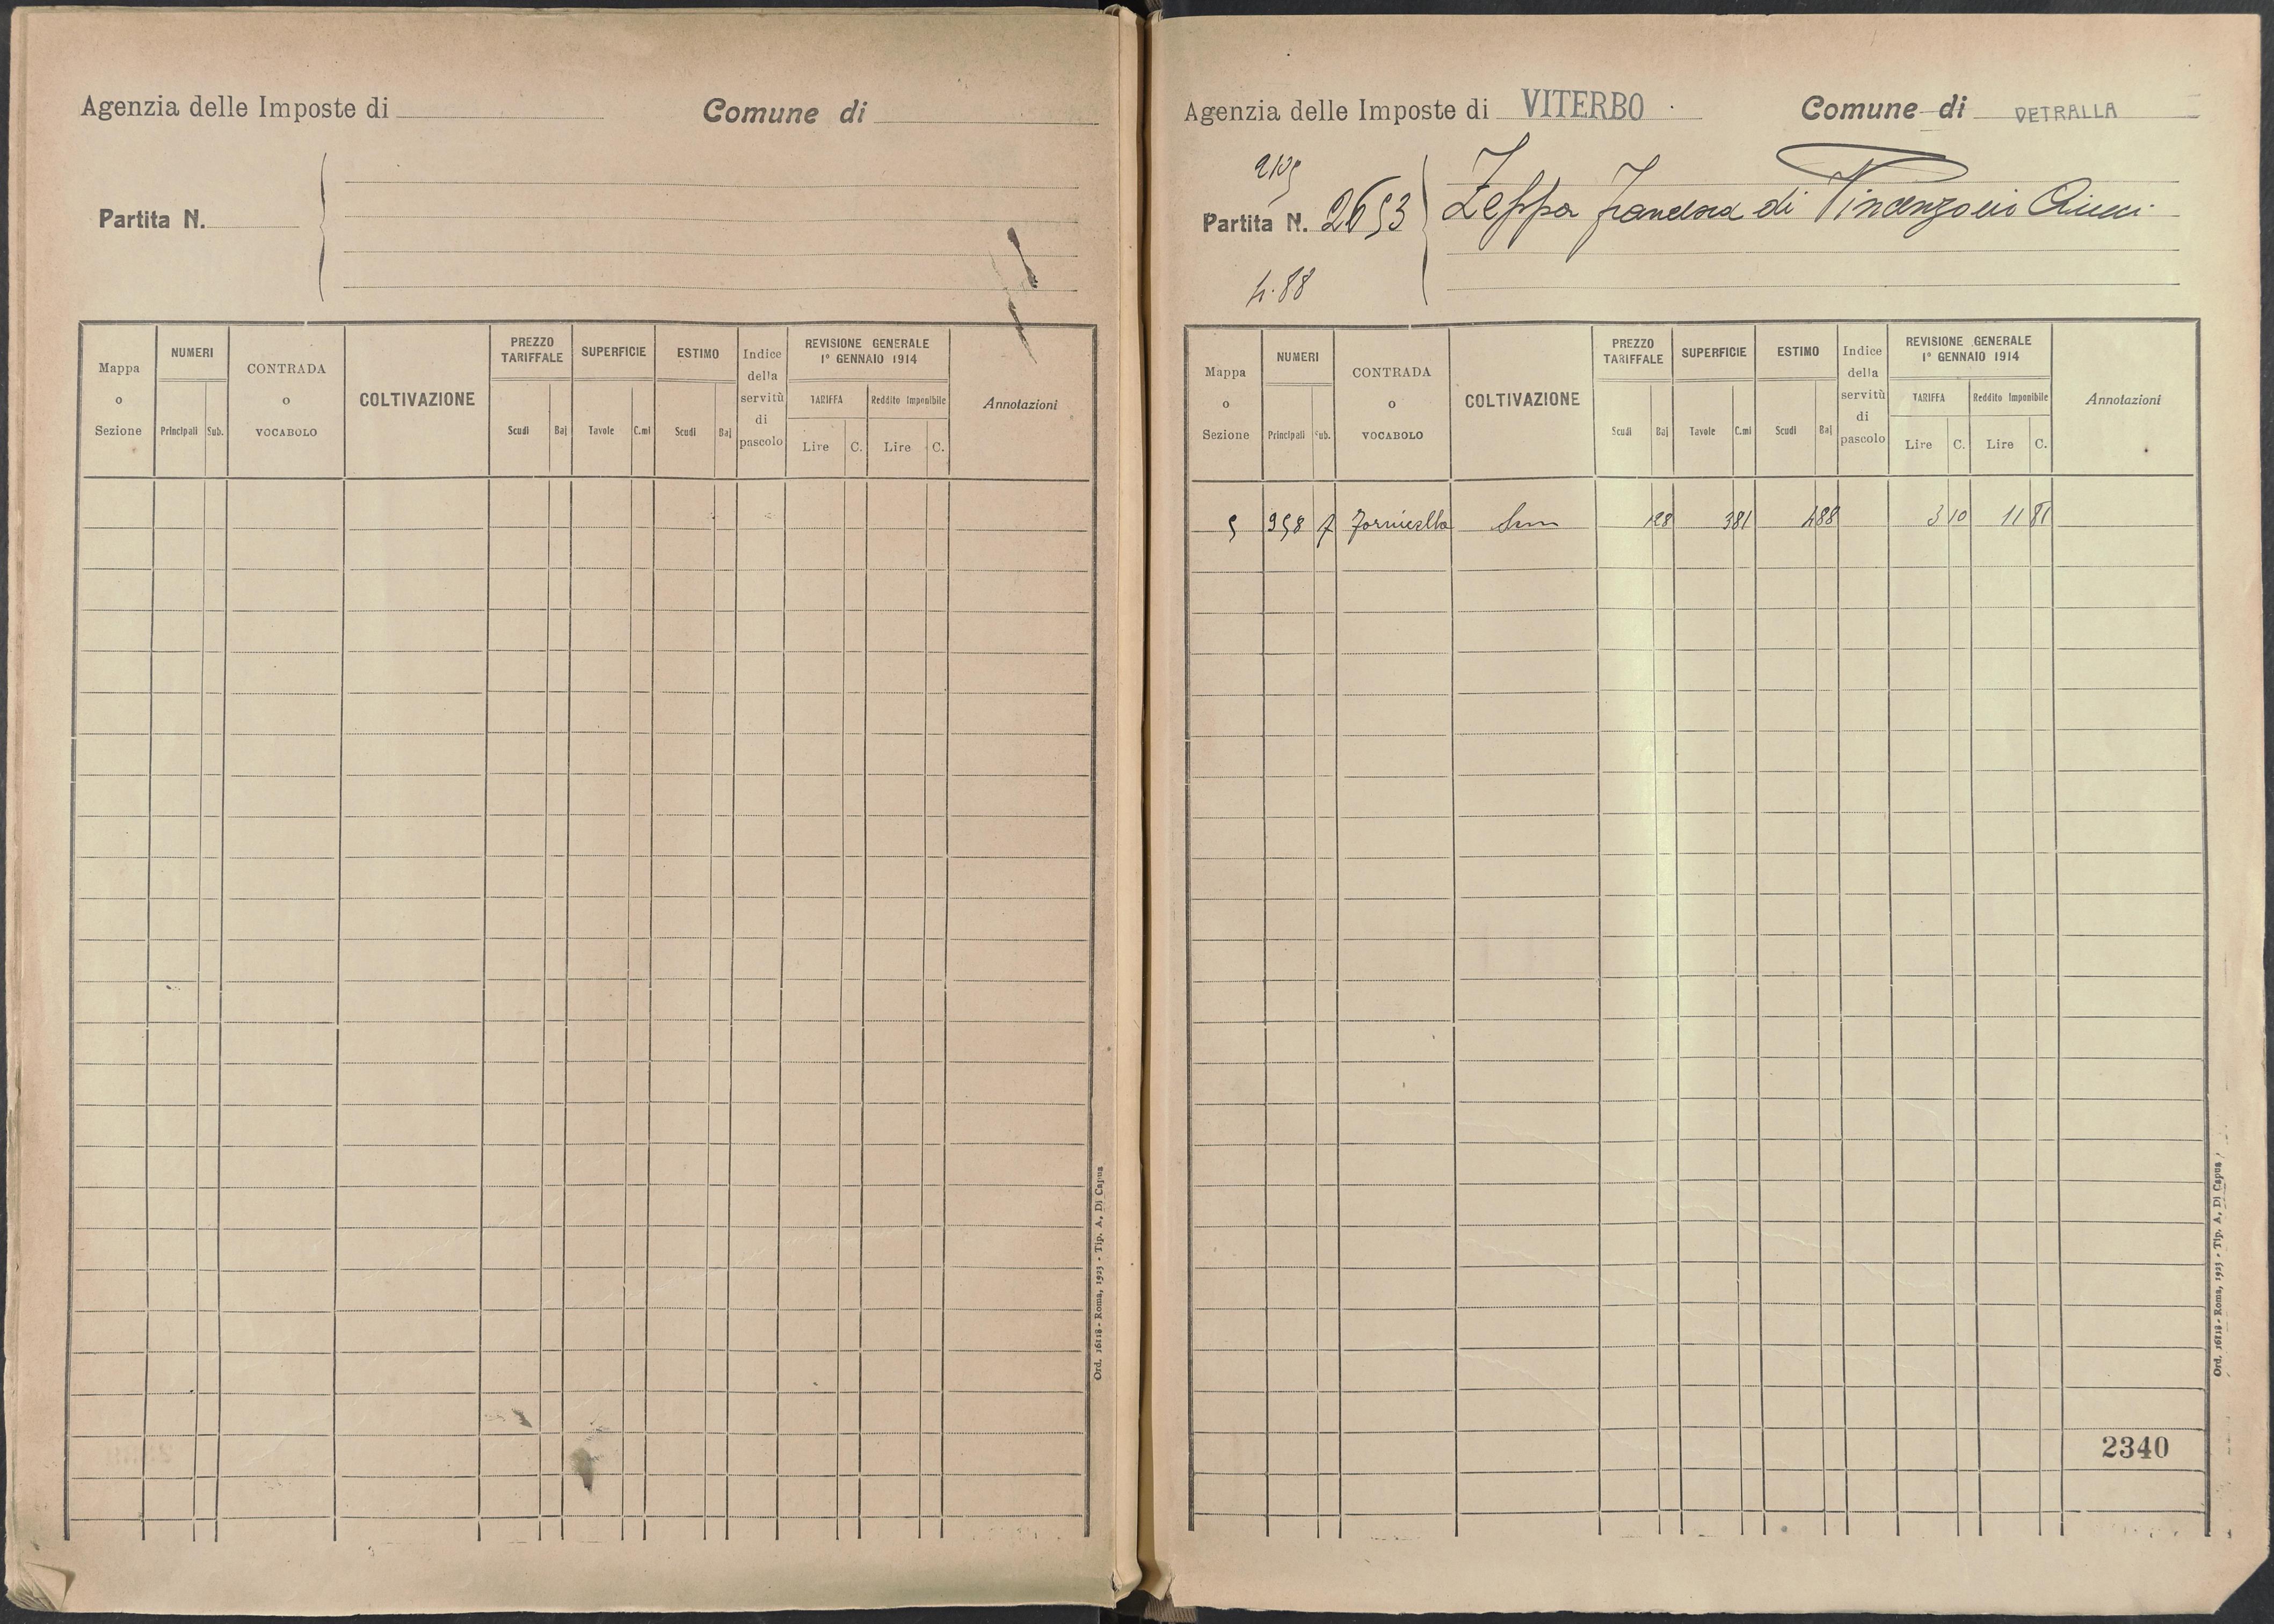 Agenzia delle Imposte di
Comune di
Partita N.
Mappa o Sezione
NUMERI
Principali
Sub.
CONTRADA o VOCABOLO
COLTIVAZIONE
PREZZO TARIFFALE
Scudi
Baj
SUPERFICIE
Tavole
C.mi
ESTIMO
Scudi
Baj
Indice della servitù di pascolo
REVISIONE GENERALE
1° GENNAIO 1914
TARIFFA
Lire
C.
Reddito Imponibile
Lire
C.
Annotazioni
Ord. 16118 - Roma, 1923 - Tip. A. Di Capua
Agenzia delle Imposte di VITERBO
Comune di VETRALLA
Partita N. 2653
Zeppa Francesca di Vincenzo in
4.88
Mappa o Sezione
NUMERI
Principali
Sub.
CONTRADA o VOCABOLO
COLTIVAZIONE
PREZZO TARIFFALE
Scudi
Baj
SUPERFICIE
Tavole
C.mi
ESTIMO
Scudi
Baj
Indice della servitù di pascolo
REVISIONE GENERALE
1° GENNAIO 1914
TARIFFA
Lire
C.
Reddito Imponibile
Lire
C.
Annotazioni
5 958 128 381 488 3 10 11 81
2340
Ord. 16118 - Roma, 1923 - Tip. A. Di Capua